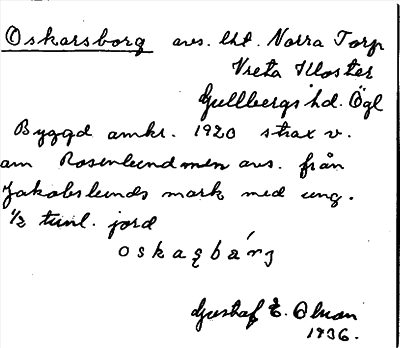 Oskarsborg avs. lht. Norra Torp
Vreta Kloster
Gullbergs hd. Ögl
Byggd omkr. 1920 strax v.
om Rosenlund men avs. från
Jakobslunds mark med ung.
1/2 tunl. jord
oskaʂbárj
Gustaf E. Olson
1936.